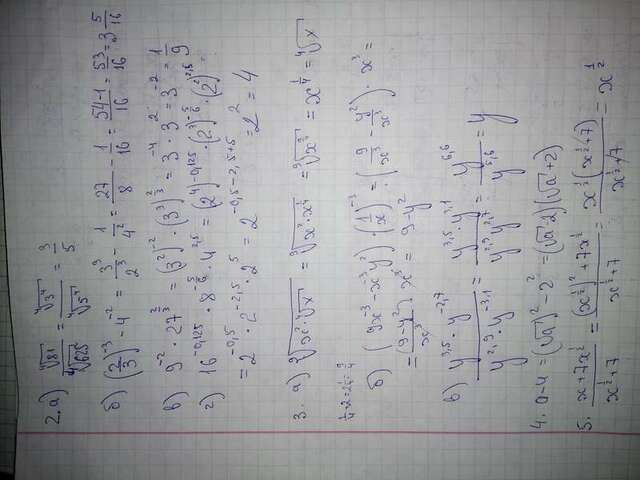 2. а) ∜81/∜625 = ∜3⁴/∜5⁴ = 3/5
б) (2/3)⁻³ - 4⁻² = 3³/2³ - 1/4² = 27/8 - 1/16 = (54-1)/16 = 53/16 = 3 5/16
в) 9⁻² · 27^(2/3) = (3²)⁻² · (3³)^(2/3) = 3⁻⁴ · 3² = 3⁻² = 1/9
г) 16^(-0,125) · 8^(-5/6) · 4^(2,5) = (2⁴)^(-0,125) · (2³)^(-5/6) · (2²)^(2,5)
= 2^(-0,5) · 2^(-2,5) · 2⁵ = 2^(-0,5-2,5+5) = 2² = 4
3. а) ⁹√(x² · ∜x) = ⁹√(x² · x^(1/4)) = ⁹√(x^(9/4)) = x^(1/4) = ∜x
1/4 + 2 = 2 1/4 = 9/4
б) (9x⁻³ - x⁻³y²) · (1/x)⁻³ = (9/x³ - y²/x³) · x³ =
= (9-y²)/x³ · x³ = 9-y²
в) (y^(3,5) · y^(-2,7))/(y^(2,9) · y^(-3,1)) = (y^(3,5) · y^(3,1))/(y^(2,9) · y^(2,7)) = y^(6,6)/y^(5,6) = y
4. a-4 = (√a)² - 2² = (√a-2)(√a+2)
5. (x+7x^(1/2))/(x^(1/2)+7) = ((x^(1/2))²+7x^(1/2))/(x^(1/2)+7) = x^(1/2)(x^(1/2)+7)/(x^(1/2)+7) = x^(1/2)